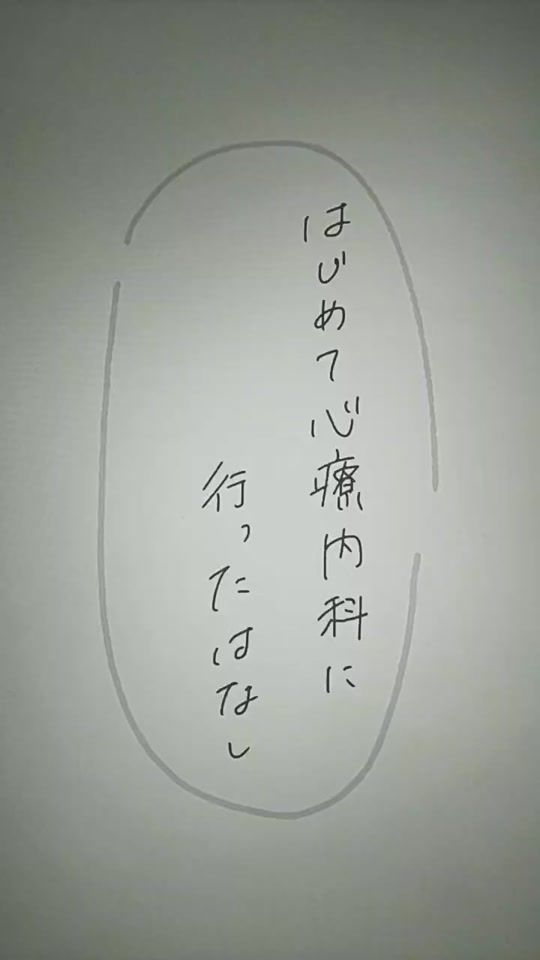 はじめて心療内科に
行ったはなし